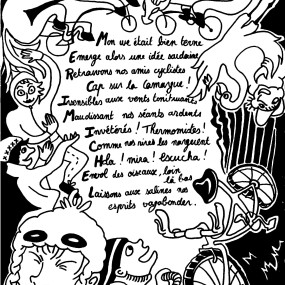 Mon vie était bien terne
Emerge alors une idée soudaine
Retrouvons nos amis cyclistes
Cap sur la Camargue !
Insensibles aux vents continuant,
Maudissant nos séants ardents
Invétérés ! Thermomides !
Comme nos rires les narguent
Hola ! mira ! Escucha !
Envol des oiseaux, loin, là bas
Laissons aux salines nos
esprits vagabonder.